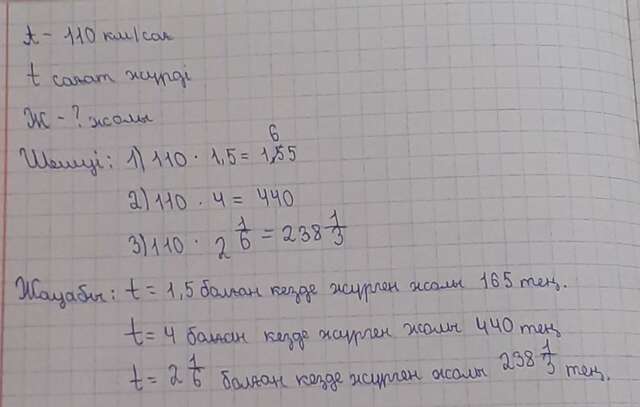 t - 110 км/сағ
t сағат жүрді
Ж - ? жолы
Шешуі: 1) 110 · 1,5 = 165
2) 110 · 4 = 440
3) 110 · 2 1/6 = 238 1/3
Жауабы: t = 1,5 болған кезде жүрген жолы 165 тең.
t = 4 болған кезде жүрген жолы 440 тең
t = 2 1/6 болған кезде жүрген жолы 238 1/3 тең.